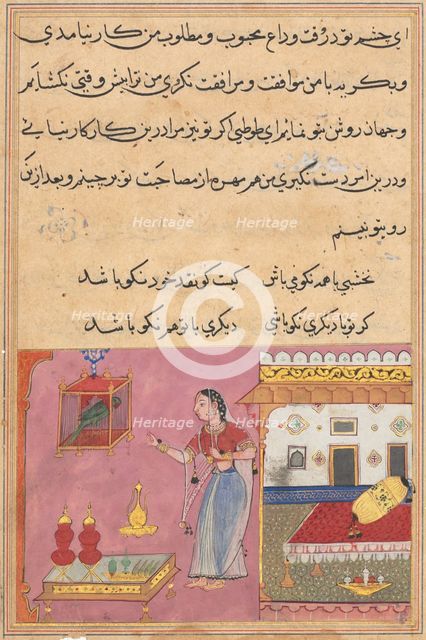 ای چشم تو در وقت وداع محبوب و مطلوب من کار نیامدی
و بگریه با من موافقت و مرافقت نکردی من ترا بیش وقتی نکشایم
و جهان روشن بتو ننمایم ای طوطی اگر تو نیز مرا درین کار کار نیائی
و درین امر دست نگیری من هم مهره از مصاحبت تو برچینم و بعد ازین
رو بتو نبینم
نخشبی با همه نکو می باش کیست کو نقد خود نکو باشد
گر تو با دیگری نکو باشی دیگری با تو هم نکو باشد
Heritage Heritage
Heritage Heritage
Heritage Heritage